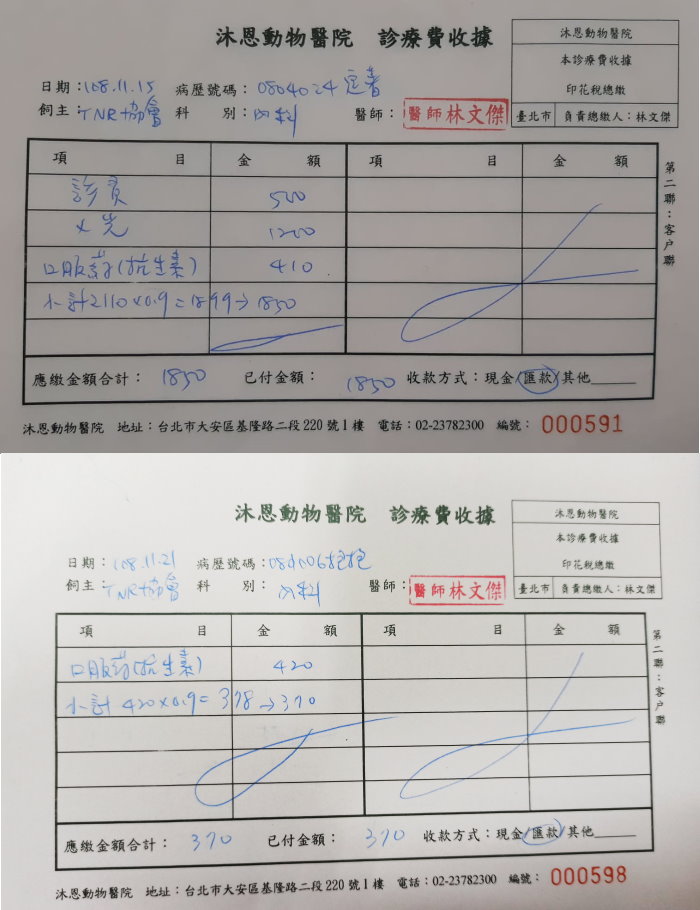 沐恩動物醫院 診療費收據
沐恩動物醫院
本診療費收據
印花稅總繳
臺北市 負責總繳人：林文傑
日期：108.11.15 病歷號碼：0804024
飼主：TNR協會 科 別：內科 醫師：醫師林文傑
項 目 金 額 項 目 金 額
診費 500
X光 1200
口服药(抗生素) 410
小計2110×0.9=1899→1850
第二聯：客戶聯
應繳金額合計： 1850 已付金額： 1850 收款方式：現金/匯款/其他______
沐恩動物醫院 地址：台北市大安區基隆路二段220號1樓 電話：02-23782300 編號： 000591
沐恩動物醫院 診療費收據
沐恩動物醫院
本診療費收據
印花稅總繳
臺北市 負責總繳人：林文傑
日期：108.11.21 病歷號碼：抱抱
飼主：TNR協會 科 別：內科 醫師：醫師林文傑
項 目 金 額 項 目 金 額
口服药(抗生素) 420
小計 420×0.9=378→370
第二聯：客戶聯
應繳金額合計： 370 已付金額： 370 收款方式：現金/匯款/其他______
沐恩動物醫院 地址：台北市大安區基隆路二段220號1樓 電話：02-23782300 編號： 000598